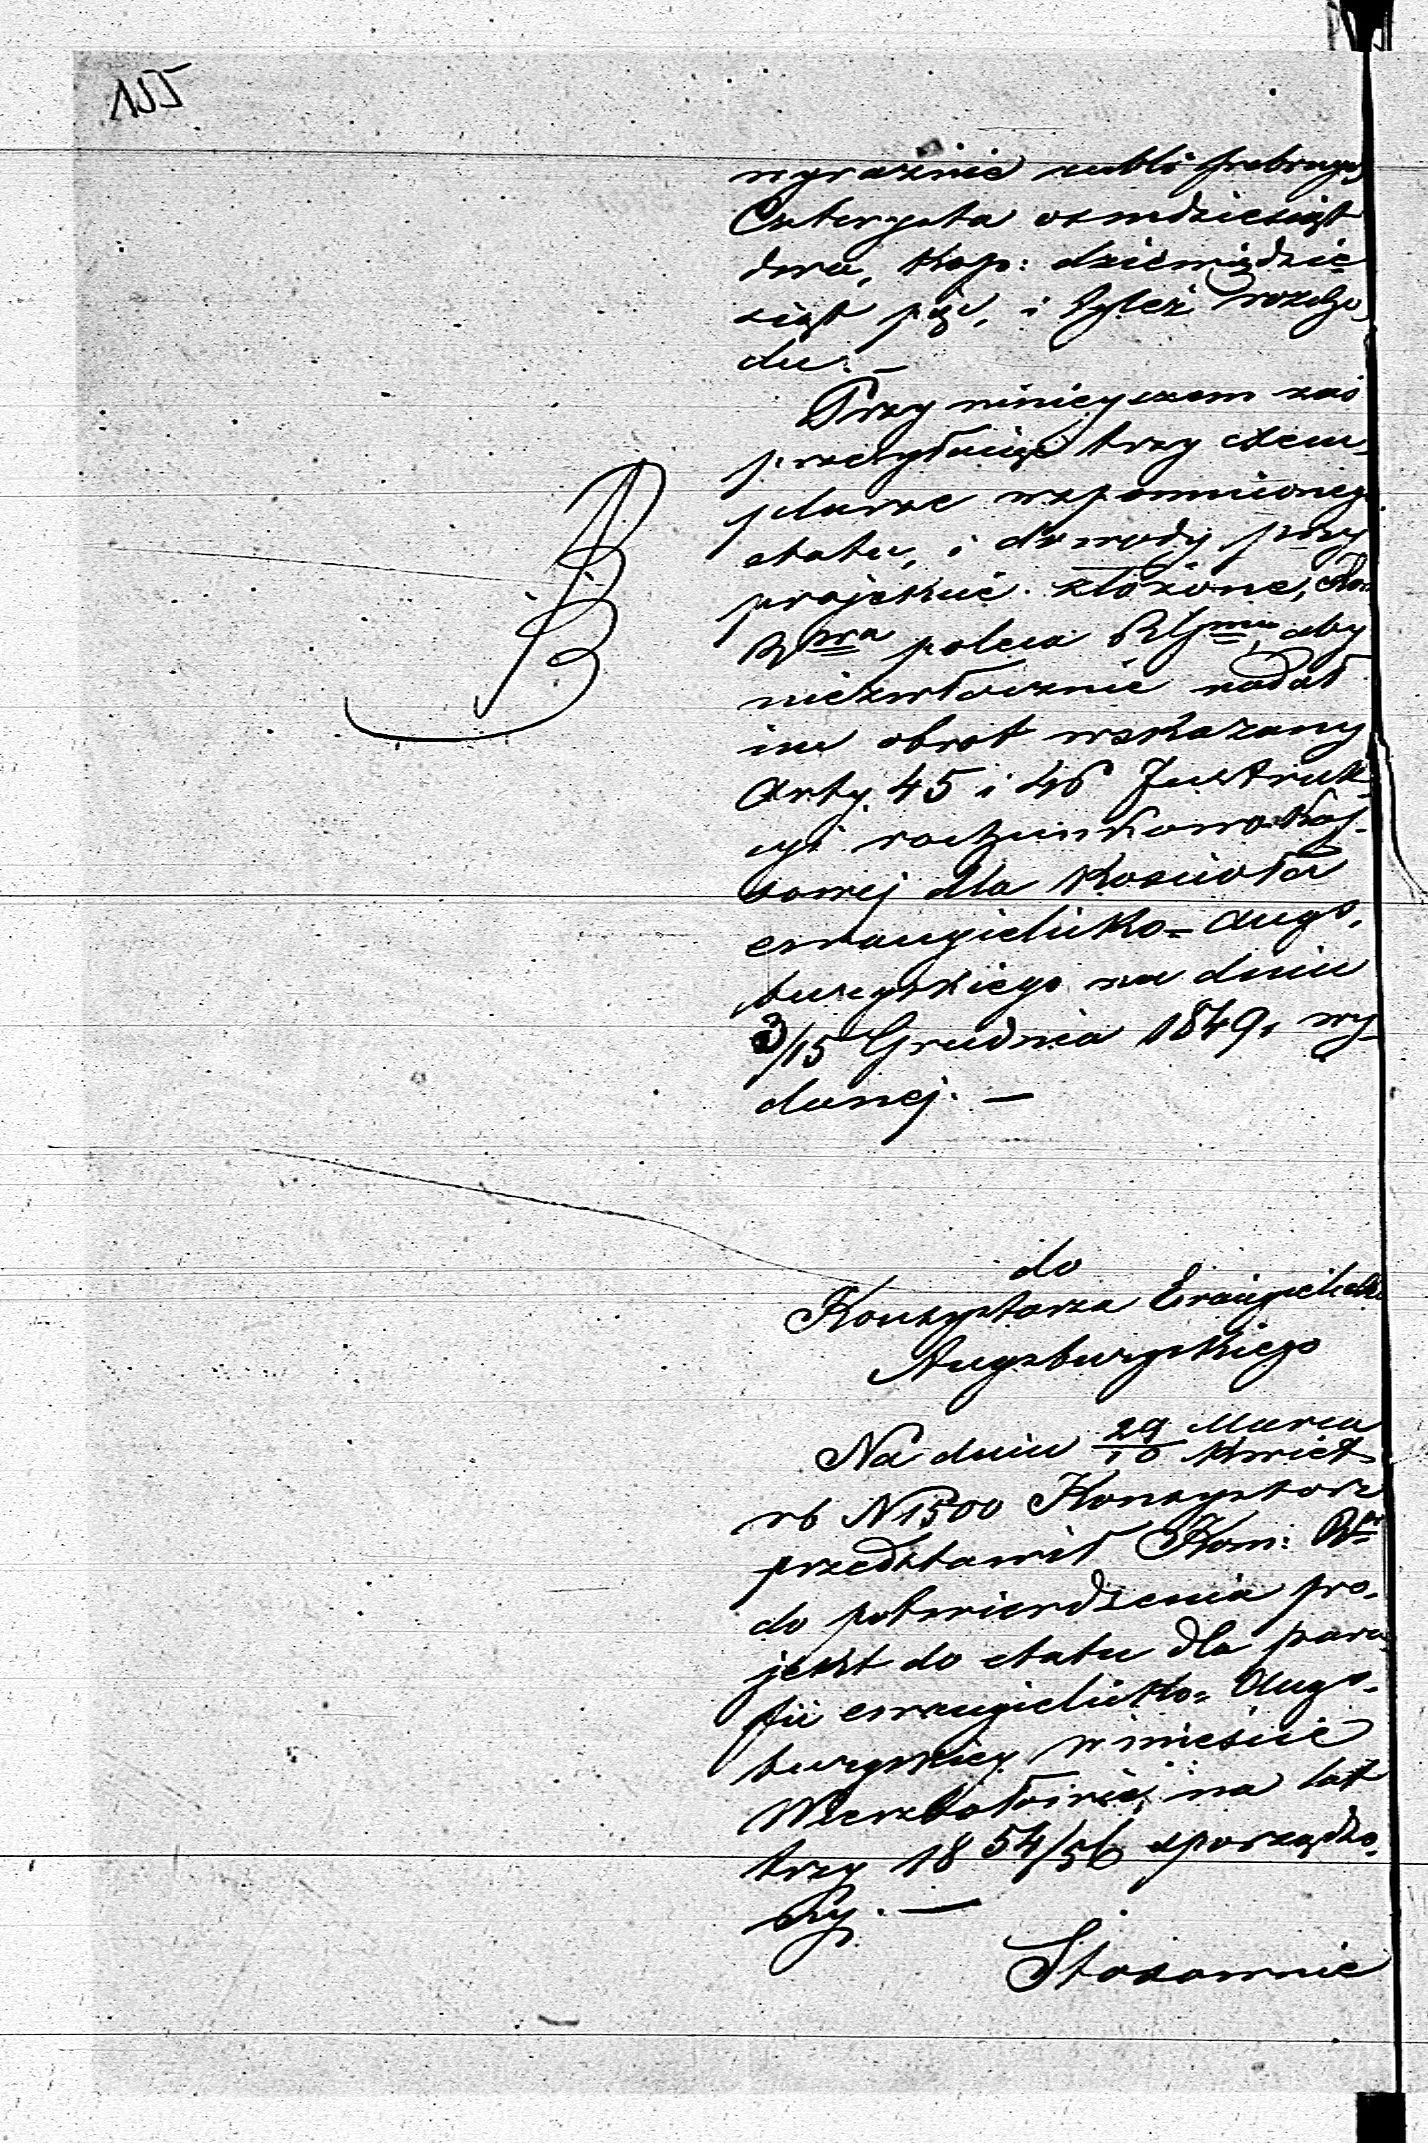 wyraźnie rubli srebrnych
Czterysta osmdziesiąt
dwa, kop: dziewiędzie
siąt pięć, i tyleż rozcho,
du. —
Przy niniejszem zaś
przesyłając trzy exem,
plarze wspomnionego
etatu, i dowody przy
projekcie złożone, Kom
Rwa poleca
aby
niezwłocznie nadał
im obrot wskazany
Arty. 45 i 46 Instruk,
cyi rachunkowo-kas,
sowej dla Kościoła
ewangielicko=Augs,
burgskiego na dniu
3/15 Grudnia 1849 r wy,
danej. —
do
Konsystorza Ewangielicko
Augsburgskiego
Na dniu 29/10 Marca Kwiet.
rb N 1500 Konsystorz
przedstawił Kom: Rwej
do potwierdzenia pro,
jekt do etatu dla para,
fii ewangielicko=Augs,
burgskiej w mieście
Wierzbołowie, na lat
trzy 1854/56 sporządzo,
ny. —
Stosownie